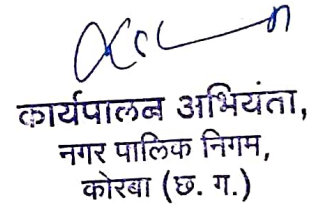 कार्यपालन अभियंता,
नगर पालिक निगम,
कोरबा (छ. ग.)